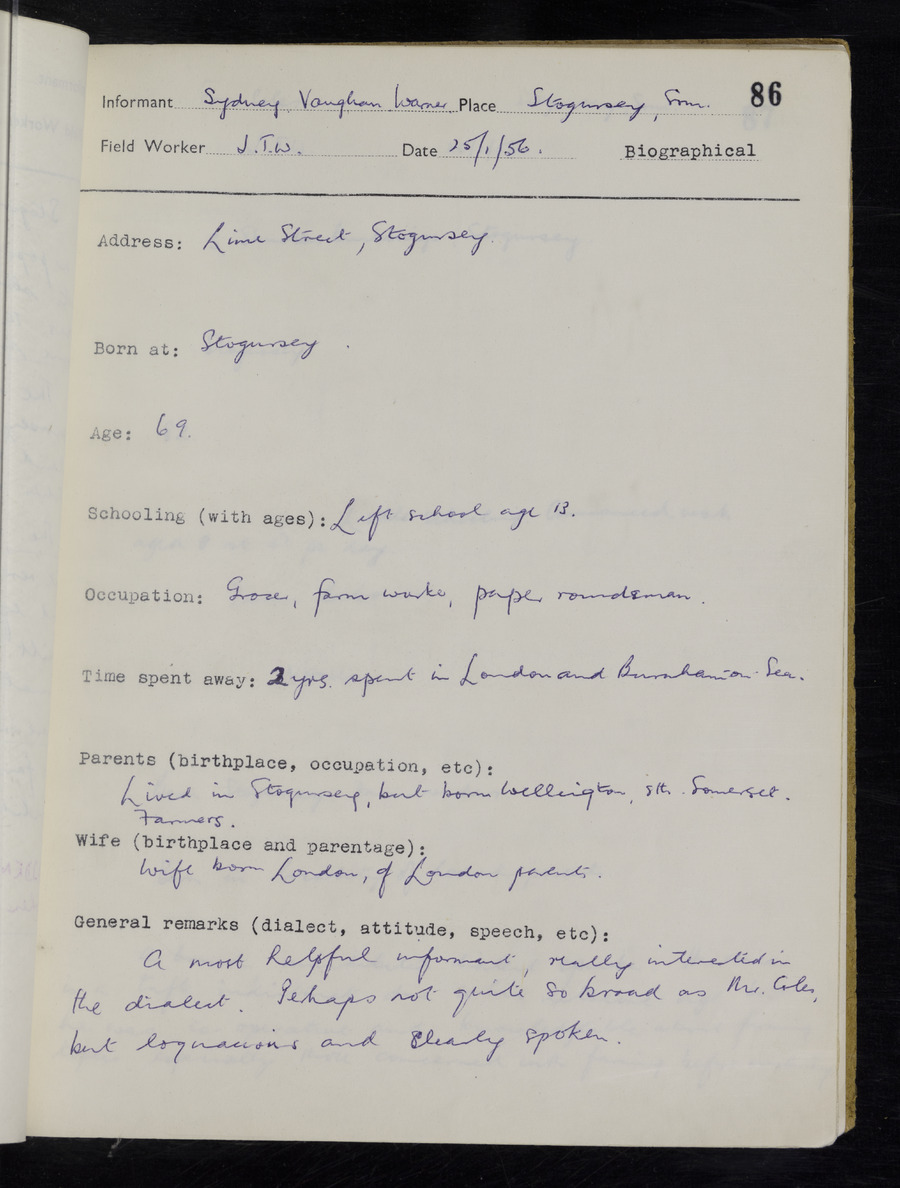 Informant Sydney Vaughan Warner Place Stogursey, Som. 86
Field Worker J.T.W. Date 25/1/56. Biographical
Address: Lime Street, Stogursey.
Born at: Stogursey.
Age: 69.
Schooling (with ages): Left school age 13.
Occupation: Grocer, farm worker, paper roundsman.
Time spent away: 2 yrs. spent in London and Burnham-on-Sea.
Parents (birthplace, occupation, etc):
Lived in Stogursey, but born Wellington, sth. Somerset.
Farmers.
Wife (birthplace and parentage):
Wife born London, of London parents.
General remarks (dialect, attitude, speech, etc):
A most helpful informant, really interested in
the dialect. Perhaps not quite so broad as Mr. Coles,
but loquacious and clearly spoken.